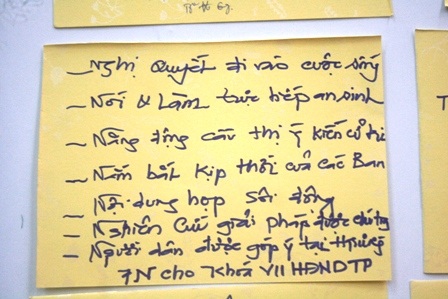 _Nghị Quyết đi vào cuộc sống
_ Nói & Làm trực tiếp an sinh
_ Năng động cầu thị ý kiến cử tri
_ Nắm bắt kịp thời của các Ban
_ Nội dung họp sôi động
_ Nghiên cứu giải pháp được
_ Người dân được góp ý tại
7N cho Khoá VII HĐNDTP